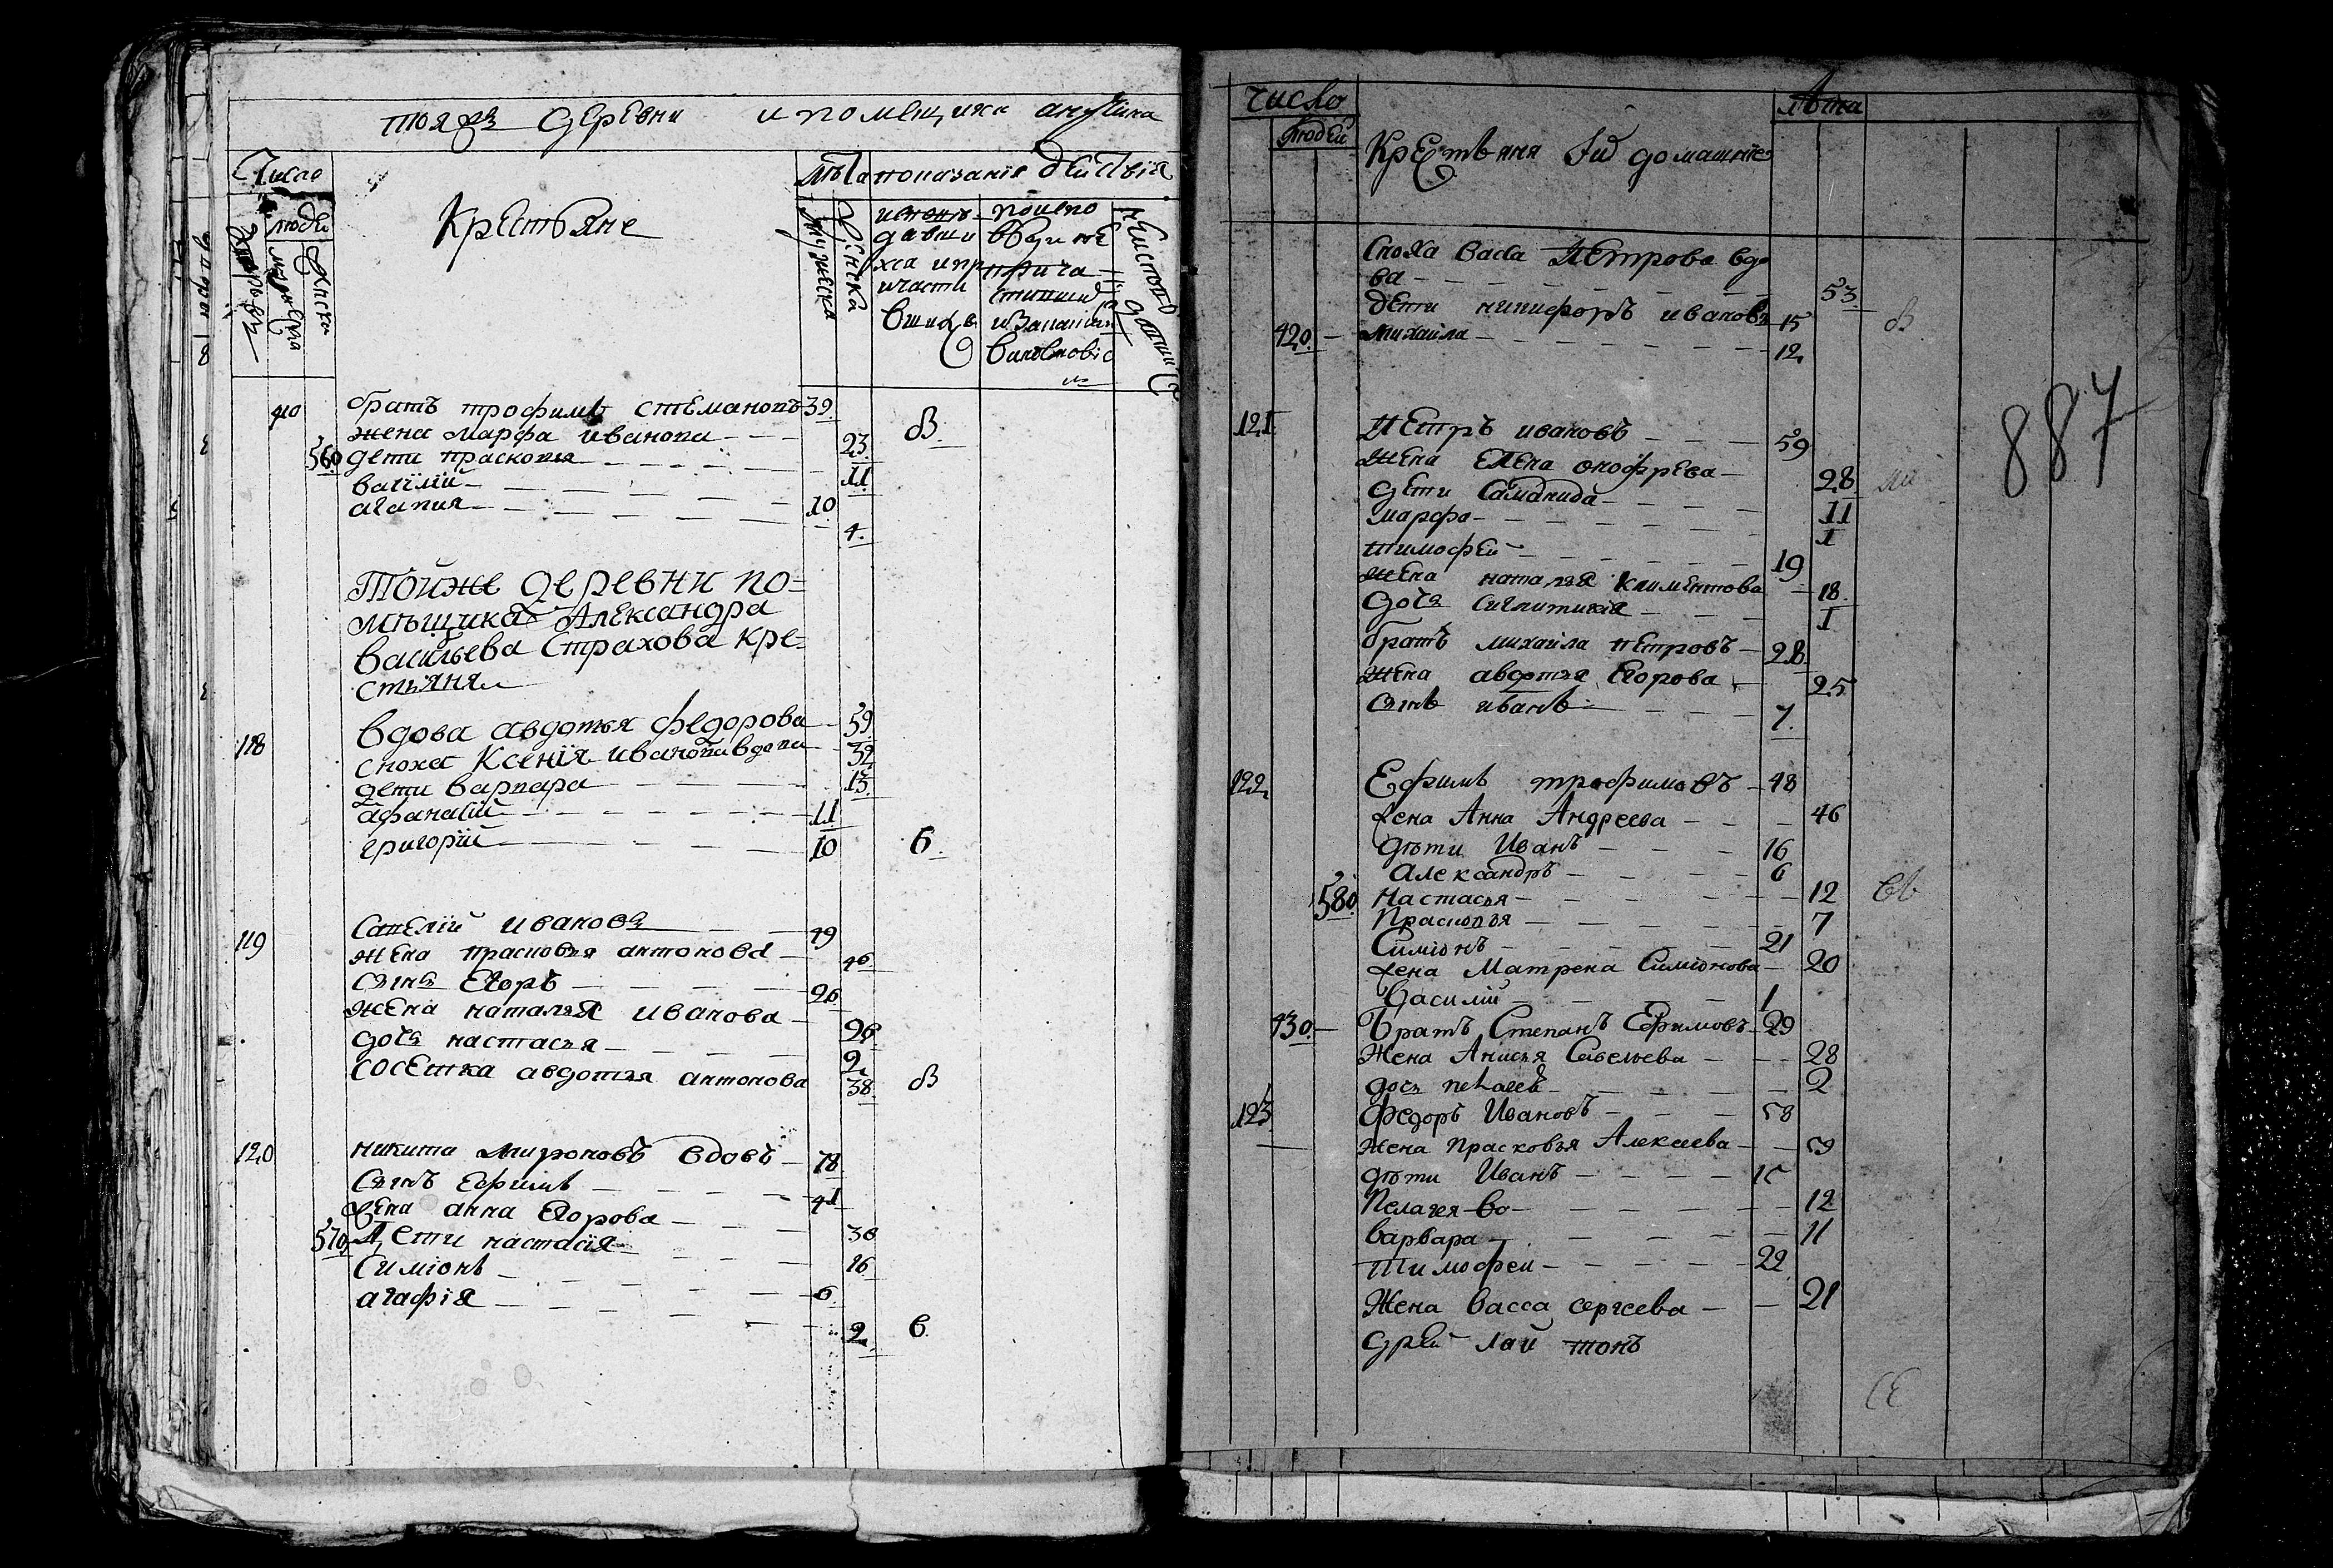 тояжъ деревни и помещика
Число
лѣта показанiе действiя
людей
Крестьяне
мужеска
женска
410 братъ трофимъ 39
жена марфа иванова 23
560 дети прасковия 11
василiй 10
агапия 4
Тойже деревни по=
мѣщика Александра
Васильева Страхова кре=
стьяня
118 вдова авдотья федорова 59
сноха Ксенiя иванова вдова 32
дети варвара 13
афанасiй 11
григорiй 10 б
119 Савелiй ивановъ 49
жена прасковья антонова 46
сынъ Егоръ 26
жена наталья иванова 26
дочь настасья 2
соседка авдотья антонова 38 в
120 никита мироновъ вдовъ 78
Сынъ Ефимъ 41
жена анна Егорова 38
570 Дети настасiя 16
Симiонъ 6
агафiя 2 в
Число Лета
людей
Крестьяня домашние
887
Сноха Васа Петрова вдо
ва 53
дети никифоръ ивановъ 15 в
420 михаила 12
121 Петръ ивановъ 59
жена Елена онофрева 28
дети Саманида 11
марфа 1
тимофей 19
жена наталья Климентова 18
дочь 1
братъ михаила петровъ 28
жена авдотья Егорова 25
сынъ иванъ 7
122 Ефимъ трофимовъ 48
жена Анна Андреева 46
дѣти Иванъ 16
Александръ 6
580 Настасья 12
Прасковья 7
Симiонъ 21
жена Матрена Симионова 20
Василiй 1
430 Братъ Степанъ Ефимовъ 29
Жена Анисья Савельева 28
дочь 2
123 Федоръ Ивановъ 58
жена Прасковья Алексеева 59
дѣти Иванъ 15
Пелагея 12
Варвара 11
Тимофеи 22
Жена Васса сергеева 21